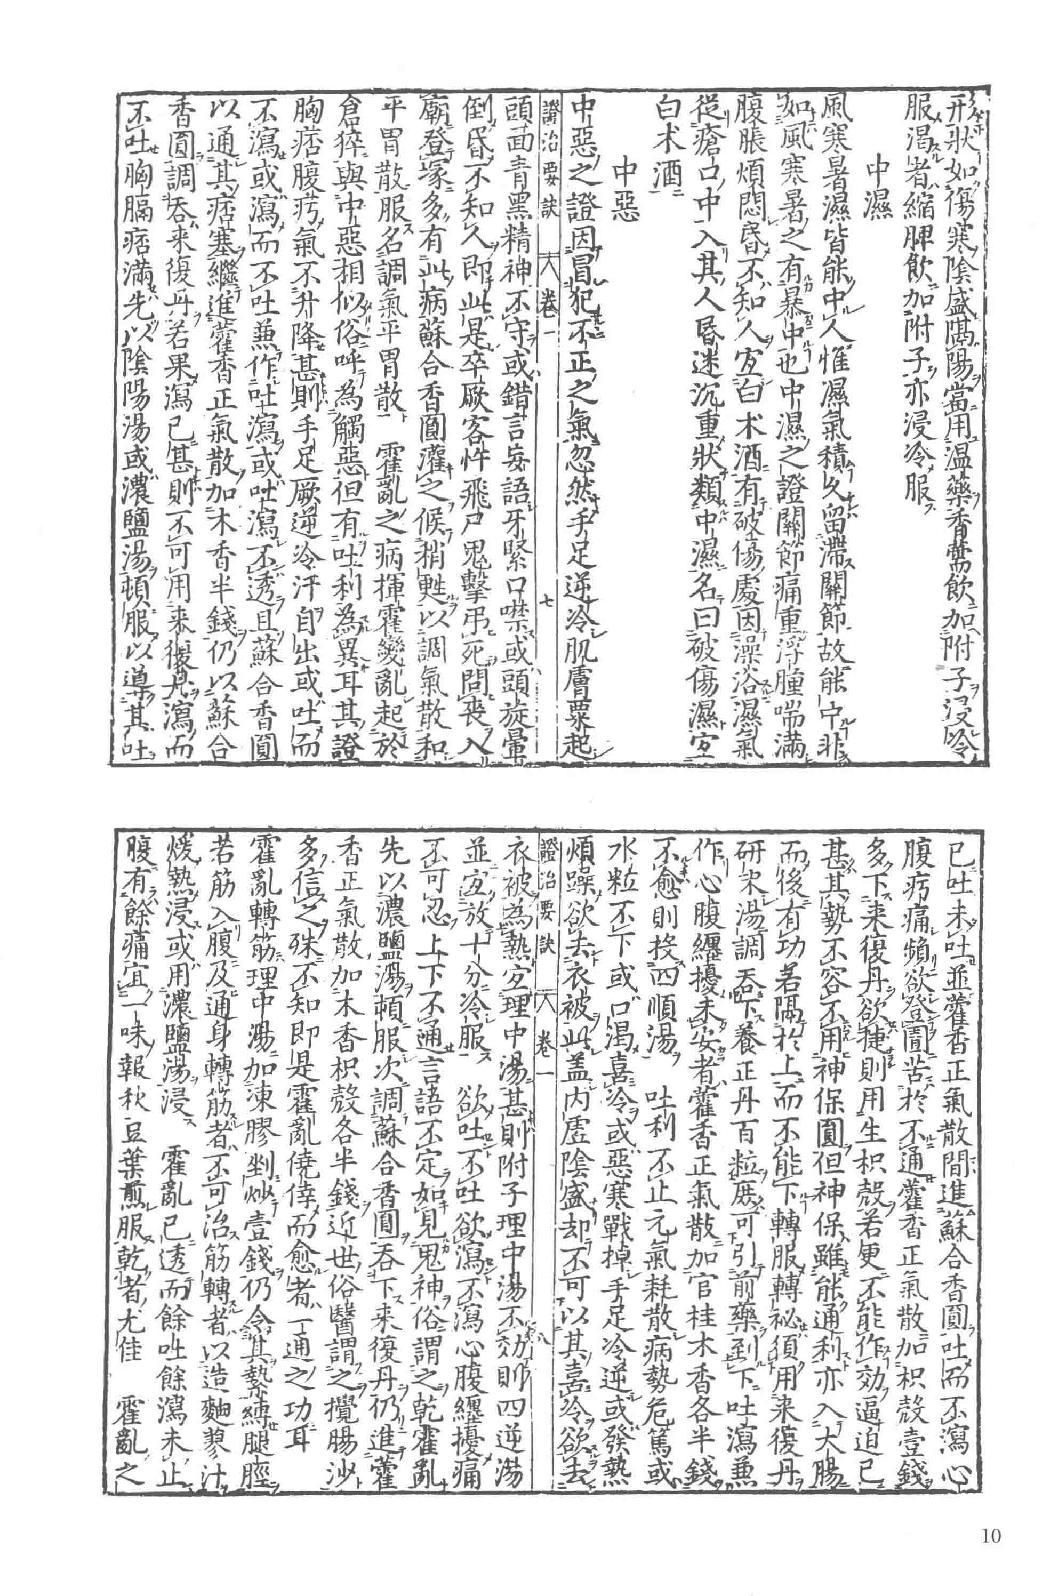 形狀如傷寒陰盛隔陽當用温藥香薷飲加附子浸冷
服渴者縮脾飲加附子亦浸冷服
中濕
風寒暑濕皆能中人惟濕氣積久留滯關節故能中非
如風寒暑之有暴中也中濕之證關節痛重浮腫喘滿
腹脹煩悶昏不知人宜白朮酒有破傷處因澡浴濕氣
從瘡口中入其人昏迷沉重狀類中濕名曰破傷濕宜
白朮酒
中惡
中惡之證因冒犯不正之氣忽然手足逆冷肌膚粟起
證治要訣 卷一 七
頭面青黑精神不守或錯言妄語牙緊口噤或頭旋暈
倒昏不知人即此是卒厥客忤飛尸鬼擊弔死問喪入
廟登塚多有此病蘇合香圓灌之候稍甦以調氣散和
平胃散服名調氣平胃散 霍亂之病揮霍變亂起於
倉猝與中惡相似俗呼為觸惡但有吐利為異耳其證
胸痞腹㽲氣不升降甚則手足厥逆冷汗自出或吐而
不瀉或瀉而不吐兼作吐瀉或吐瀉不透且蘇合香圓
以通其痞塞繼進藿香正氣散加木香半錢仍以蘇合
香圓調吞來復丹若果瀉已甚則不可用來復丹瀉而
不吐胸膈痞滿先以陰陽湯或濃鹽湯頓服以導其吐
已吐未吐並藿香正氣散間進蘇合香圓吐而不瀉心
腹㽲痛頻欲登圊苦於不通藿香正氣散加枳殼壹錢
多下來復丹欲捷則用生枳殼若更不能作効逼迫已
甚其勢不容不用神保圓但神保雖能通利亦入大腸
而後有功若隔於上而不能下轉服轉祕須用來復丹
研末湯調吞下養正丹百粒庶可引前藥到下吐瀉兼
作心腹纏擾未安者藿香正氣散加官桂木香各半錢
不愈則投四順湯 吐利不止元氣耗散病勢危篤或
水粒不下或口渴喜冷或惡寒戰掉手足冷逆或發熱
煩躁欲去衣被此盖内虚陰盛却不可以其喜冷欲去
證治要訣 卷一 八
衣被為熱宜理中湯甚則附子理中湯不効則四逆湯
並宜放十分冷服 欲吐不吐欲瀉不瀉心腹纏擾痛
不可忍上下不通言語不定如見鬼神俗謂之乾霍亂
先以濃鹽湯頓服次調蘇合香圓吞下來復丹仍進藿
香正氣散加木香枳殼各半錢近世俗醫謂之攪腸沙
多信之殊不知即是霍亂僥倖而愈者丁通之功耳
霍亂轉筋理中湯加凍膠剉炒壹錢仍令其縶縛腿脛
若筋入腹及通身轉筋者不可治筋轉者以造麯蓼汁
煖熱浸或用濃鹽湯浸 霍亂已透而餘吐餘瀉未止
腹有餘痛宜一味報秋豆葉煎服乾者尤佳 霍亂之
10